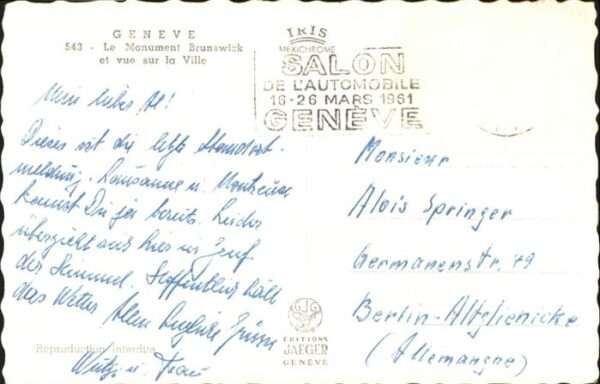 GENEVE
543 - Le Monument Brunswick
et vue sur la Ville
IRIS
MEXICHROME
SALON
DE L'AUTOMOBILE
16-26 MARS 1961
GENÈVE
Mein lieber Al!
Dieses ist die letzte Standort-
meldung. Lausanne u. Montreux
kennst Du ja bereits. Leider
überzieht auch hier in Genf
der Himmel. Hoffentlich hält
das Wetter. Allen herzliche Grüsse
u. Frau
Monsieur
Alois Springer
Germanenstr. 49
Berlin-Altglienicke
(Allemagne)
EDITIONS
JAEGER
GENÈVE
Reproduction interdite